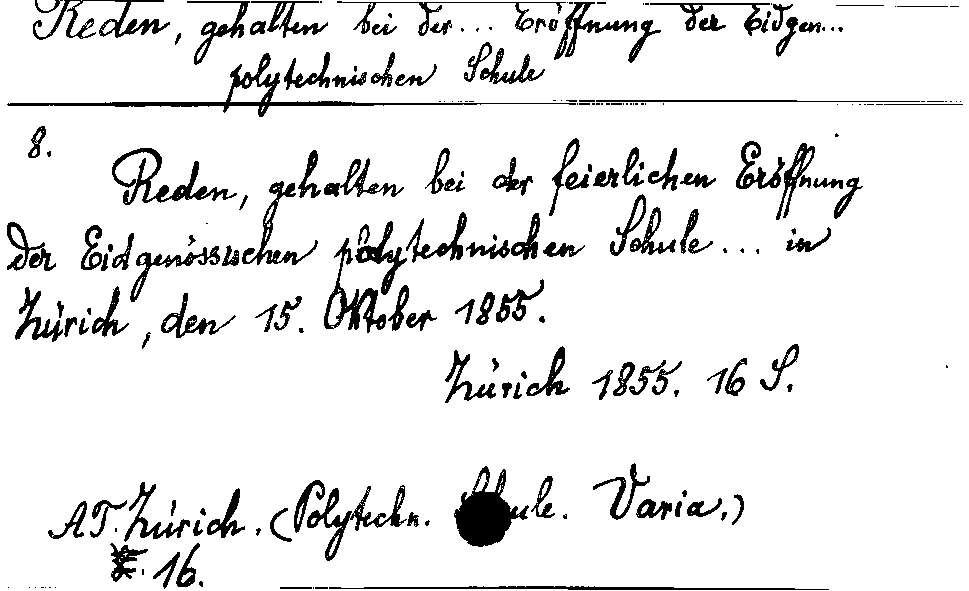 Reden, gehalten bei der... Eröffnung der Eidgen...
polytechnischen Schule
8.
Reden, gehalten bei der feierlichen Eröffnung
der Eidgenössischen polytechnischen Schule... in
Zürich, den 15. Oktober 1855.
Zürich 1855. 16 S.
AT. Zürich. (Polytechn. Schule. Varia.)
16.